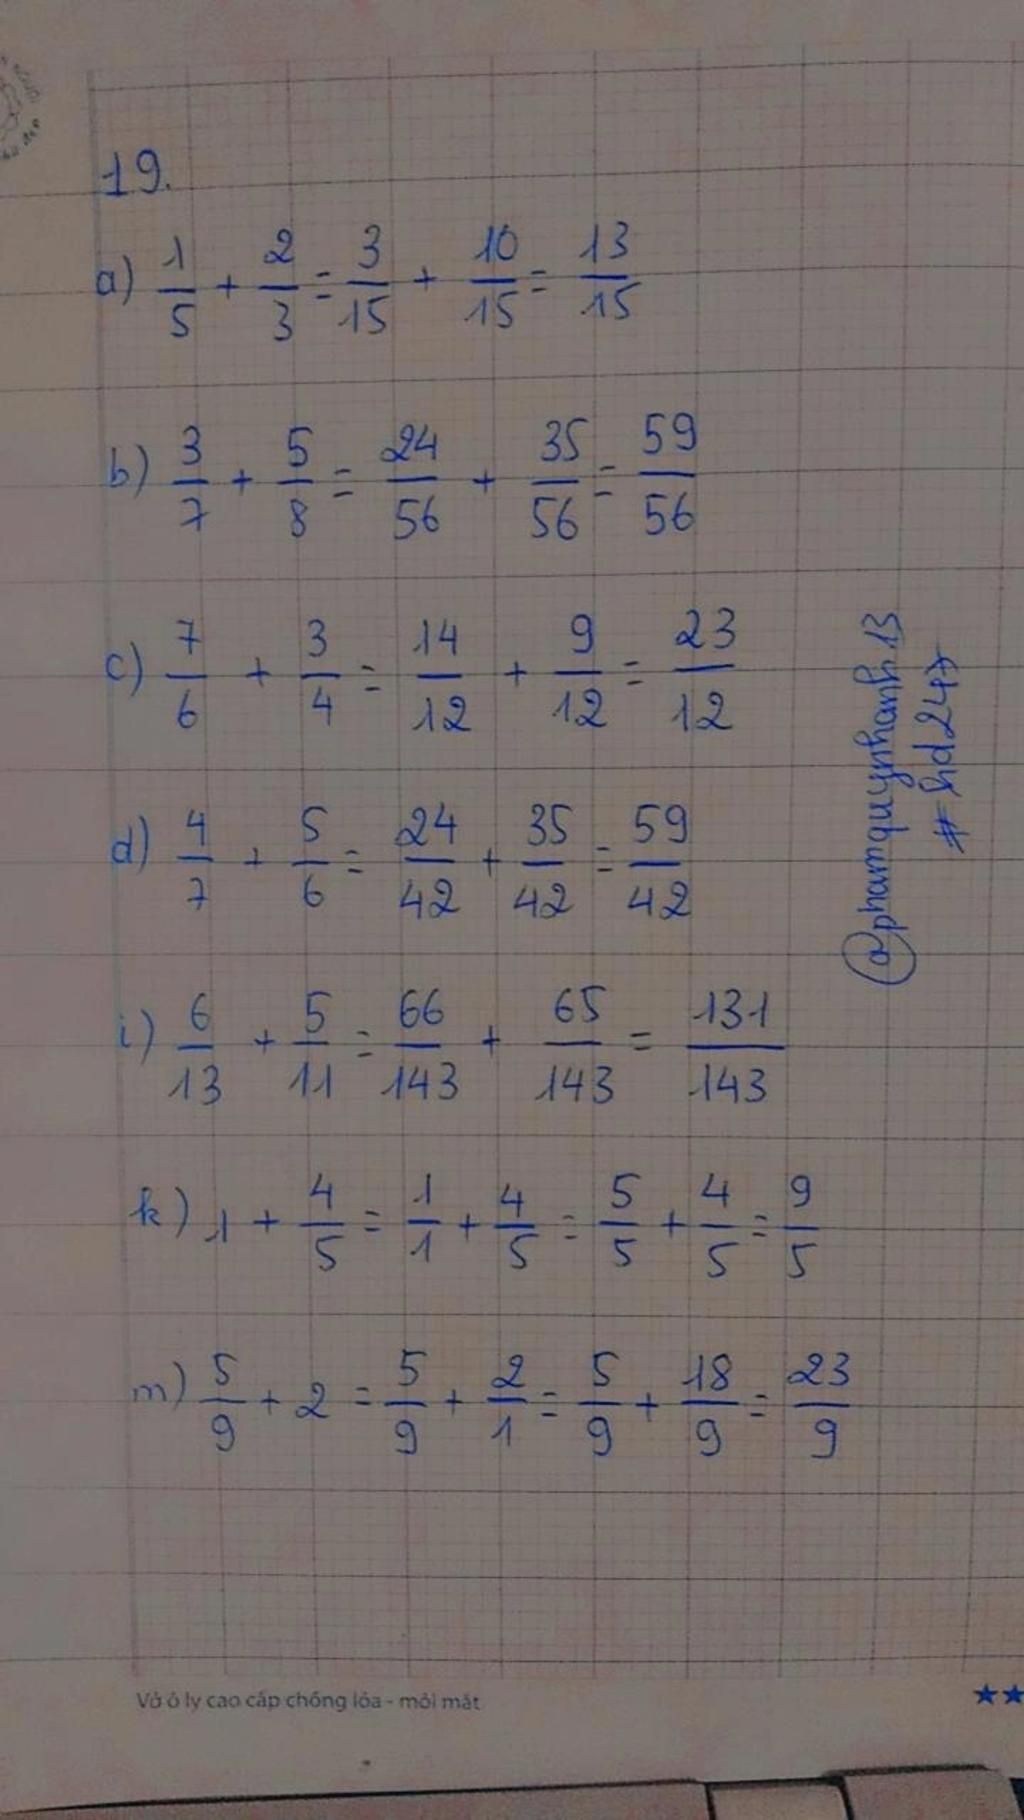 19.
a) 1/5 + 2/3 = 3/15 + 10/15 = 13/15
b) 3/7 + 5/8 = 24/56 + 35/56 = 59/56
c) 7/6 + 3/4 = 14/12 + 9/12 = 23/12
d) 4/7 + 5/6 = 24/42 + 35/42 = 59/42
i) 6/13 + 5/11 = 66/143 + 65/143 = 131/143
k) 1 + 4/5 = 1/1 + 4/5 = 5/5 + 4/5 = 9/5
m) 5/9 + 2 = 5/9 + 2/1 = 5/9 + 18/9 = 23/9
@phamquynhanh13
#hd247
Vở ô ly cao cấp chống lóa - mỏi mắt